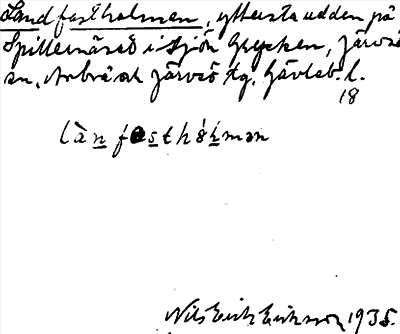 Landfastholmen, yttersta udden på
Spillernäset i sjön Grycken, Järvsö
sn, Arbrå ok Järvsö tg. Gävleb. l.
18
lànfasthòlmən
Nils Erik Eriksson 1935.